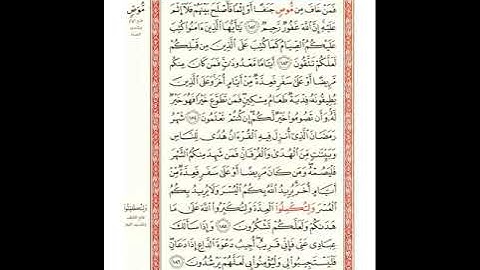 فَمَنْ خَافَ مِن مُّوَصٍّ جَنَفًا أَوْ إِثْمًا فَأَصْلَحَ بَيْنَهُمْ فَلَآ إِثْمَ
عَلَيْهِ إِنَّ ٱللَّهَ غَفُورٌ رَّحِيمٌ ١٨٢ يَٰٓأَيُّهَا ٱلَّذِينَ ءَامَنُوا۟ كُتِبَ
عَلَيْكُمُ ٱلصِّيَامُ كَمَا كُتِبَ عَلَى ٱلَّذِينَ مِن قَبْلِكُمْ
لَعَلَّكُمْ تَتَّقُونَ ١٨٣ أَيَّامًا مَّعْدُودَٰتٍ فَمَن كَانَ مِنكُم
مَّرِيضًا أَوْ عَلَىٰ سَفَرٍ فَعِدَّةٌ مِّنْ أَيَّامٍ أُخَرَ وَعَلَى ٱلَّذِينَ
يُطِيقُونَهُۥ فِدْيَةٌ طَعَامُ مِسْكِينٍ فَمَن تَطَوَّعَ خَيْرًا فَهُوَ خَيْرٌ
لَّهُۥ وَأَن تَصُومُوا۟ خَيْرٌ لَّكُمْ إِن كُنتُمْ تَعْلَمُونَ ١٨٤ شَهْرُ
رَمَضَانَ ٱلَّذِىٓ أُنزِلَ فِيهِ ٱلْقُرْءَانُ هُدًى لِّلنَّاسِ
وَبَيِّنَٰتٍ مِّنَ ٱلْهُدَىٰ وَٱلْفُرْقَانِ فَمَن شَهِدَ مِنكُمُ ٱلشَّهْرَ
فَلْيَصُمْهُ وَمَن كَانَ مَرِيضًا أَوْ عَلَىٰ سَفَرٍ فَعِدَّةٌ مِّنْ
أَيَّامٍ أُخَرَ يُرِيدُ ٱللَّهُ بِكُمُ ٱلْيُسْرَ وَلَا يُرِيدُ بِكُمُ
ٱلْعُسْرَ وَلِتُكَمِّلُوا۟ ٱلْعِدَّةَ وَلِتُكَبِّرُوا۟ ٱللَّهَ عَلَىٰ مَا
هَدَىٰكُمْ وَلَعَلَّكُمْ تَشْكُرُونَ ١٨٥ وَإِذَا سَأَلَكَ
عِبَادِى عَنِّى فَإِنِّى قَرِيبٌ أُجِيبُ دَعْوَةَ ٱلدَّاعِ إِذَا دَعَانِ
فَلْيَسْتَجِيبُوا۟ لِى وَلْيُؤْمِنُوا۟ بِى لَعَلَّهُمْ يَرْشُدُونَ ١٨٦
مُّوَصٍّ
وَلِتُكَمِّلُوا۟